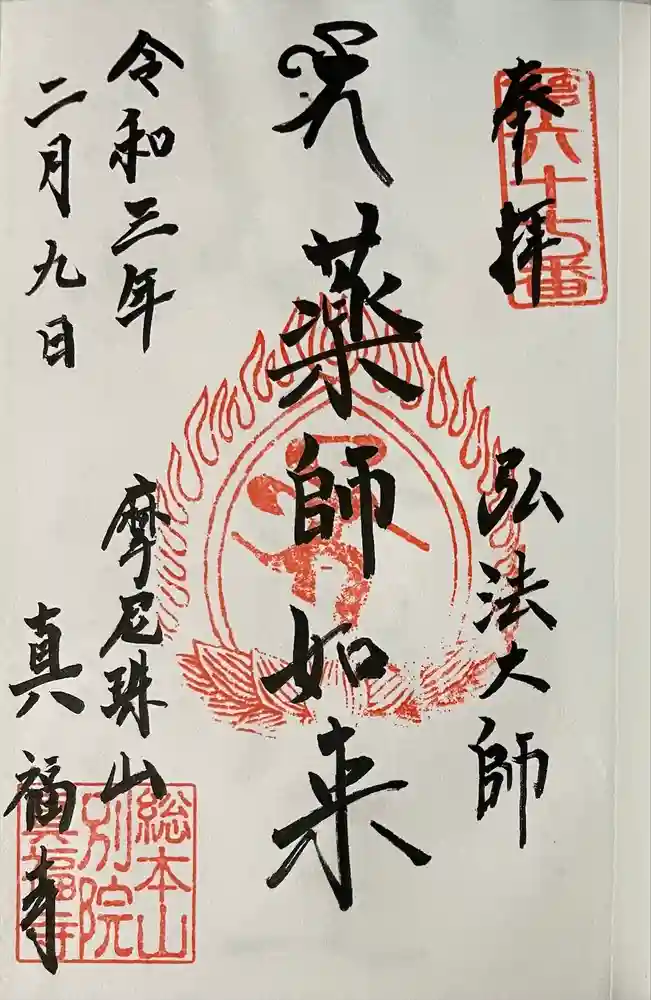 奉拝
第六十七番
弘法大師
薬師如来
令和三年
二月九日
摩尼珠山
真福寺
総本山
別院
真福寺